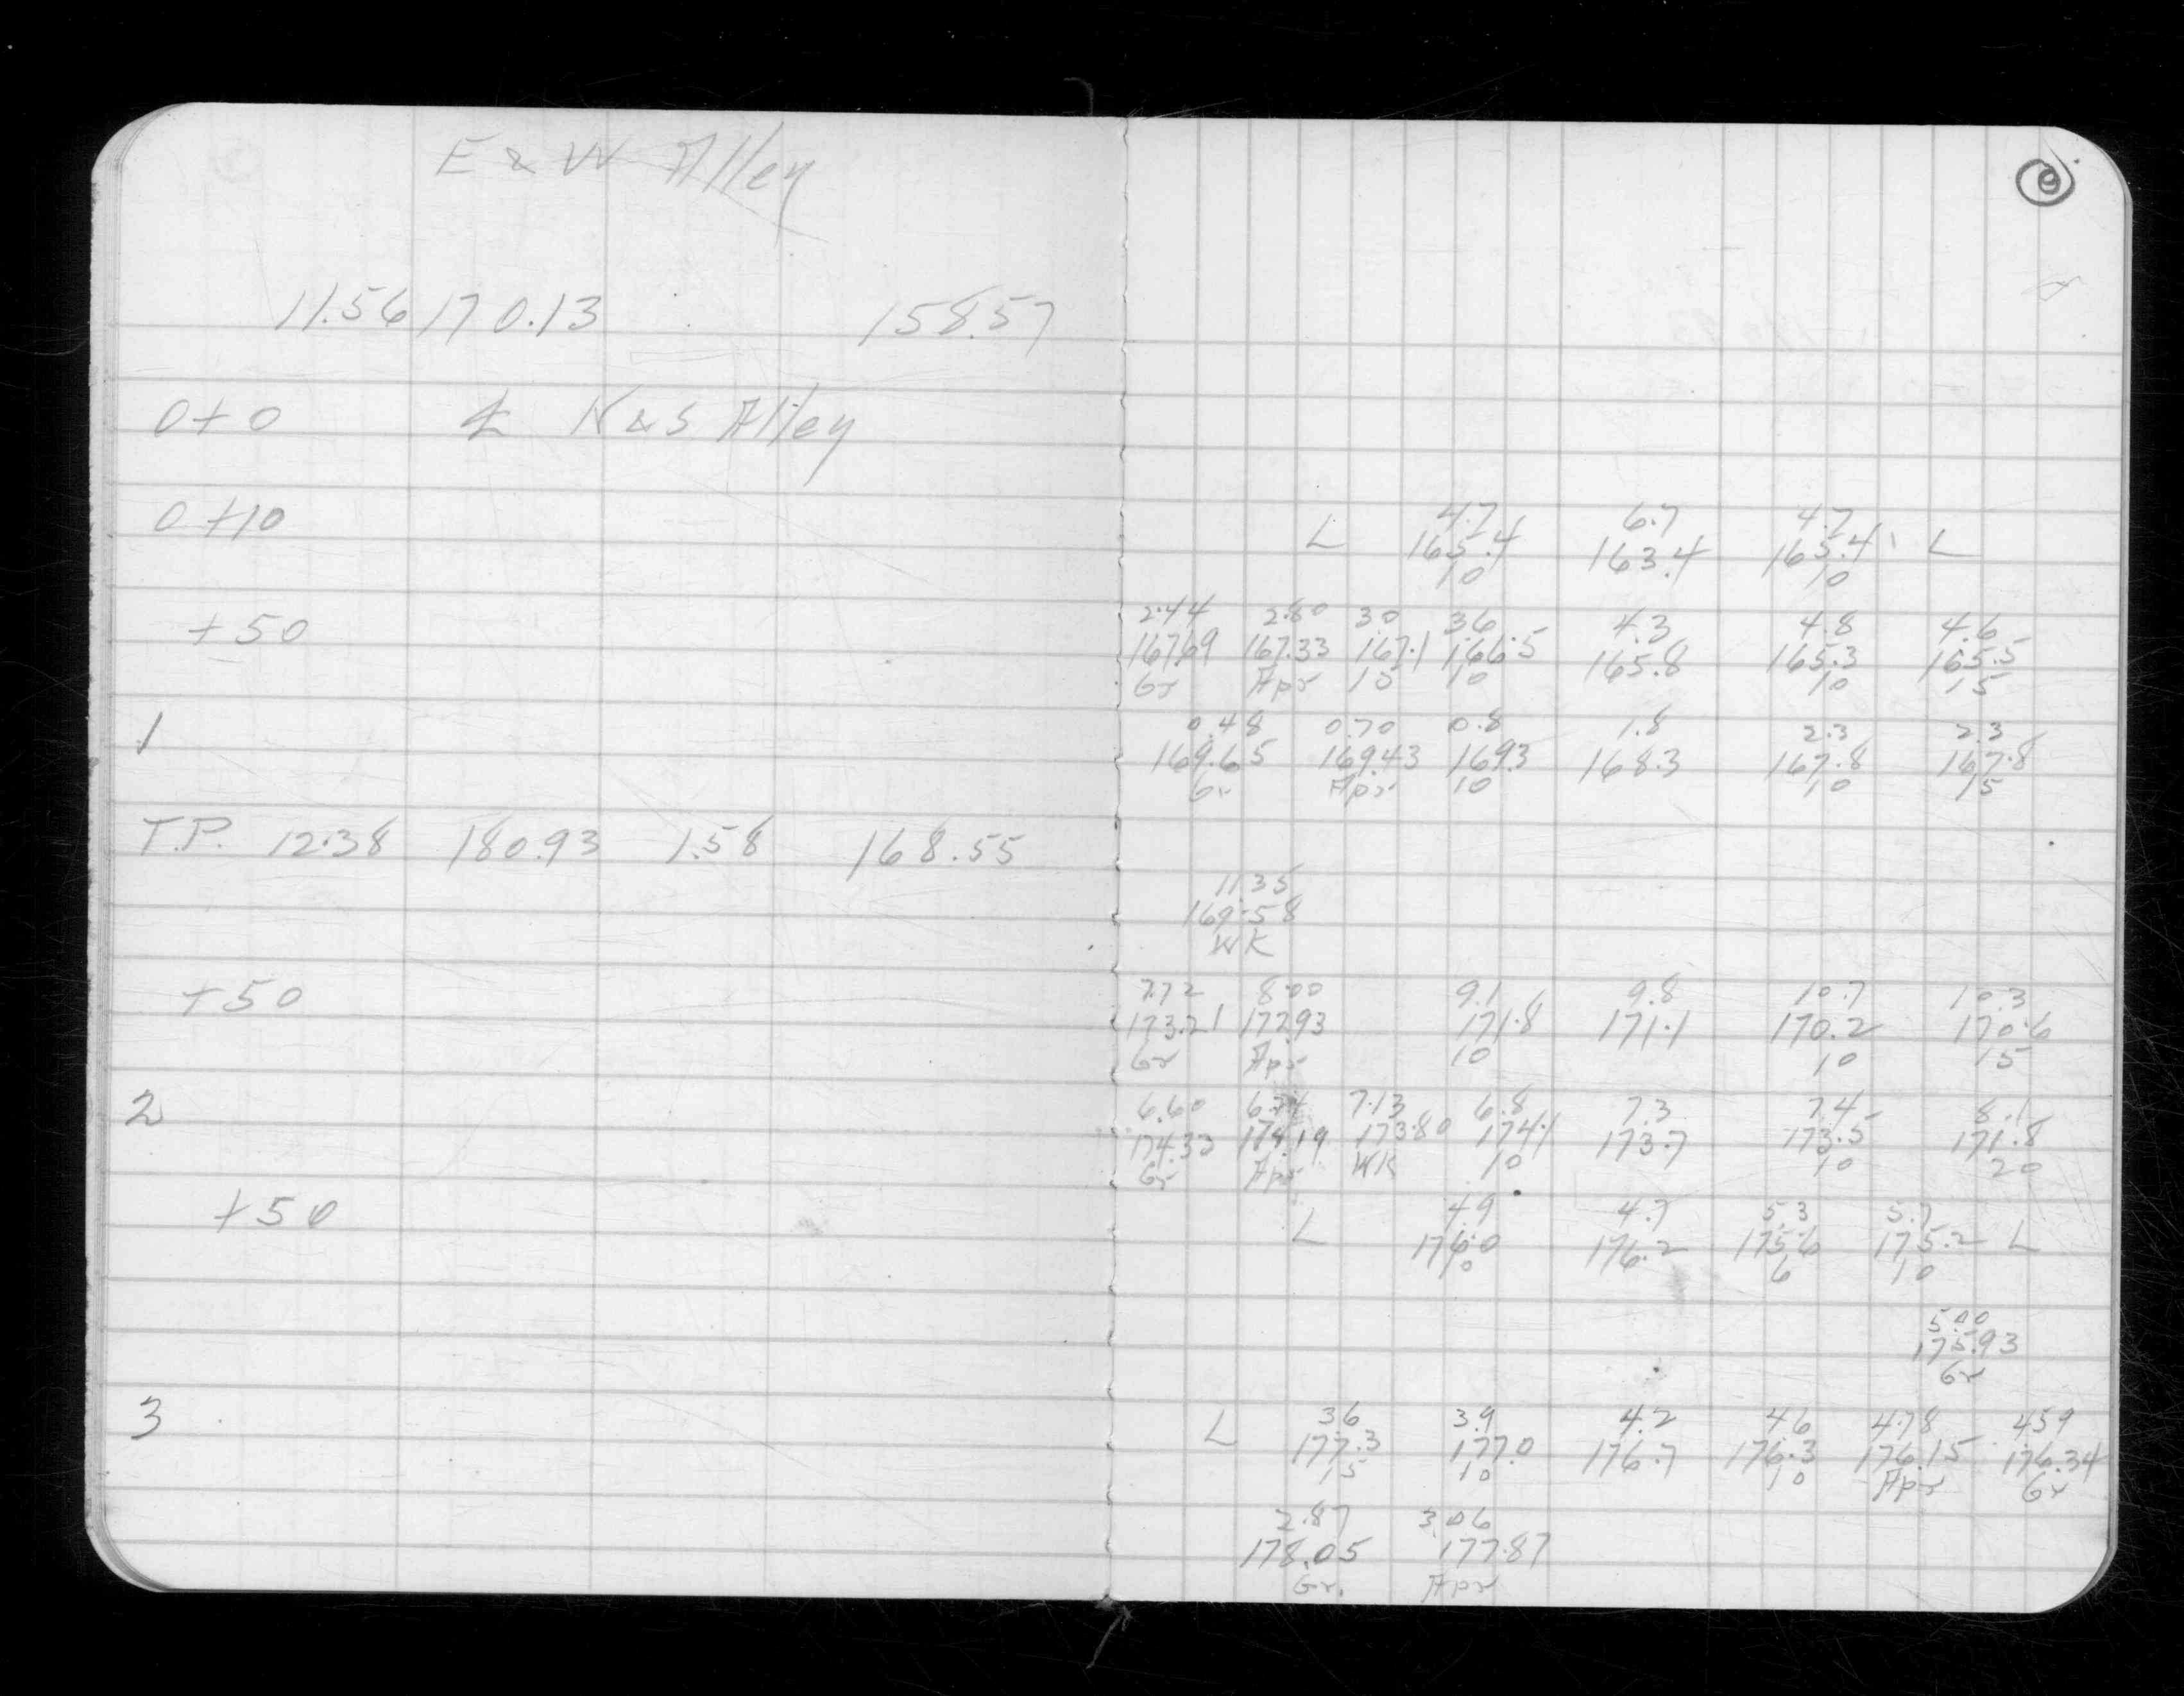 E & W Alley
11.56 170.13 158.57
0+0 ℄ N & S Alley
0+10
L 4.7 6.7 4.7 L
165.4 163.4 165.4
10 10
+50
2.44 2.80 3.0 3.6 4.3 4.8 4.6
167.69 167.33 167.1 166.5 165.8 165.3 165.5
Gr Apr 15 10 10 15
1
0.48 0.70 0.8 1.8 2.3 2.3
169.65 169.43 169.3 168.3 167.8 167.8
Gr Apr 10 10 15
T.P. 12.38 180.93 1.58 168.55
11.35
169.58
WK
+50
7.72 8.00 9.1 9.8 10.7 10.3
173.21 172.93 171.8 171.1 170.2 170.6
Gr Apr 10 10 15
2
6.60 6.74 7.13 6.8 7.3 7.4 8.1
174.33 174.19 173.80 174.1 173.7 173.5 171.8
Gr Apr WK 10 10 20
+50
L 4.9 4.7 5.3 5.7 L
176.0 176.2 175.6 175.2
10 6 10
5.00
175.93
Gr
3
L 3.6 3.9 4.2 4.6 4.78 4.59
177.3 177.0 176.7 176.3 176.15 176.34
15 10 10 Apr Gr
2.87 3.06
178.05 177.87
Gr. Apr